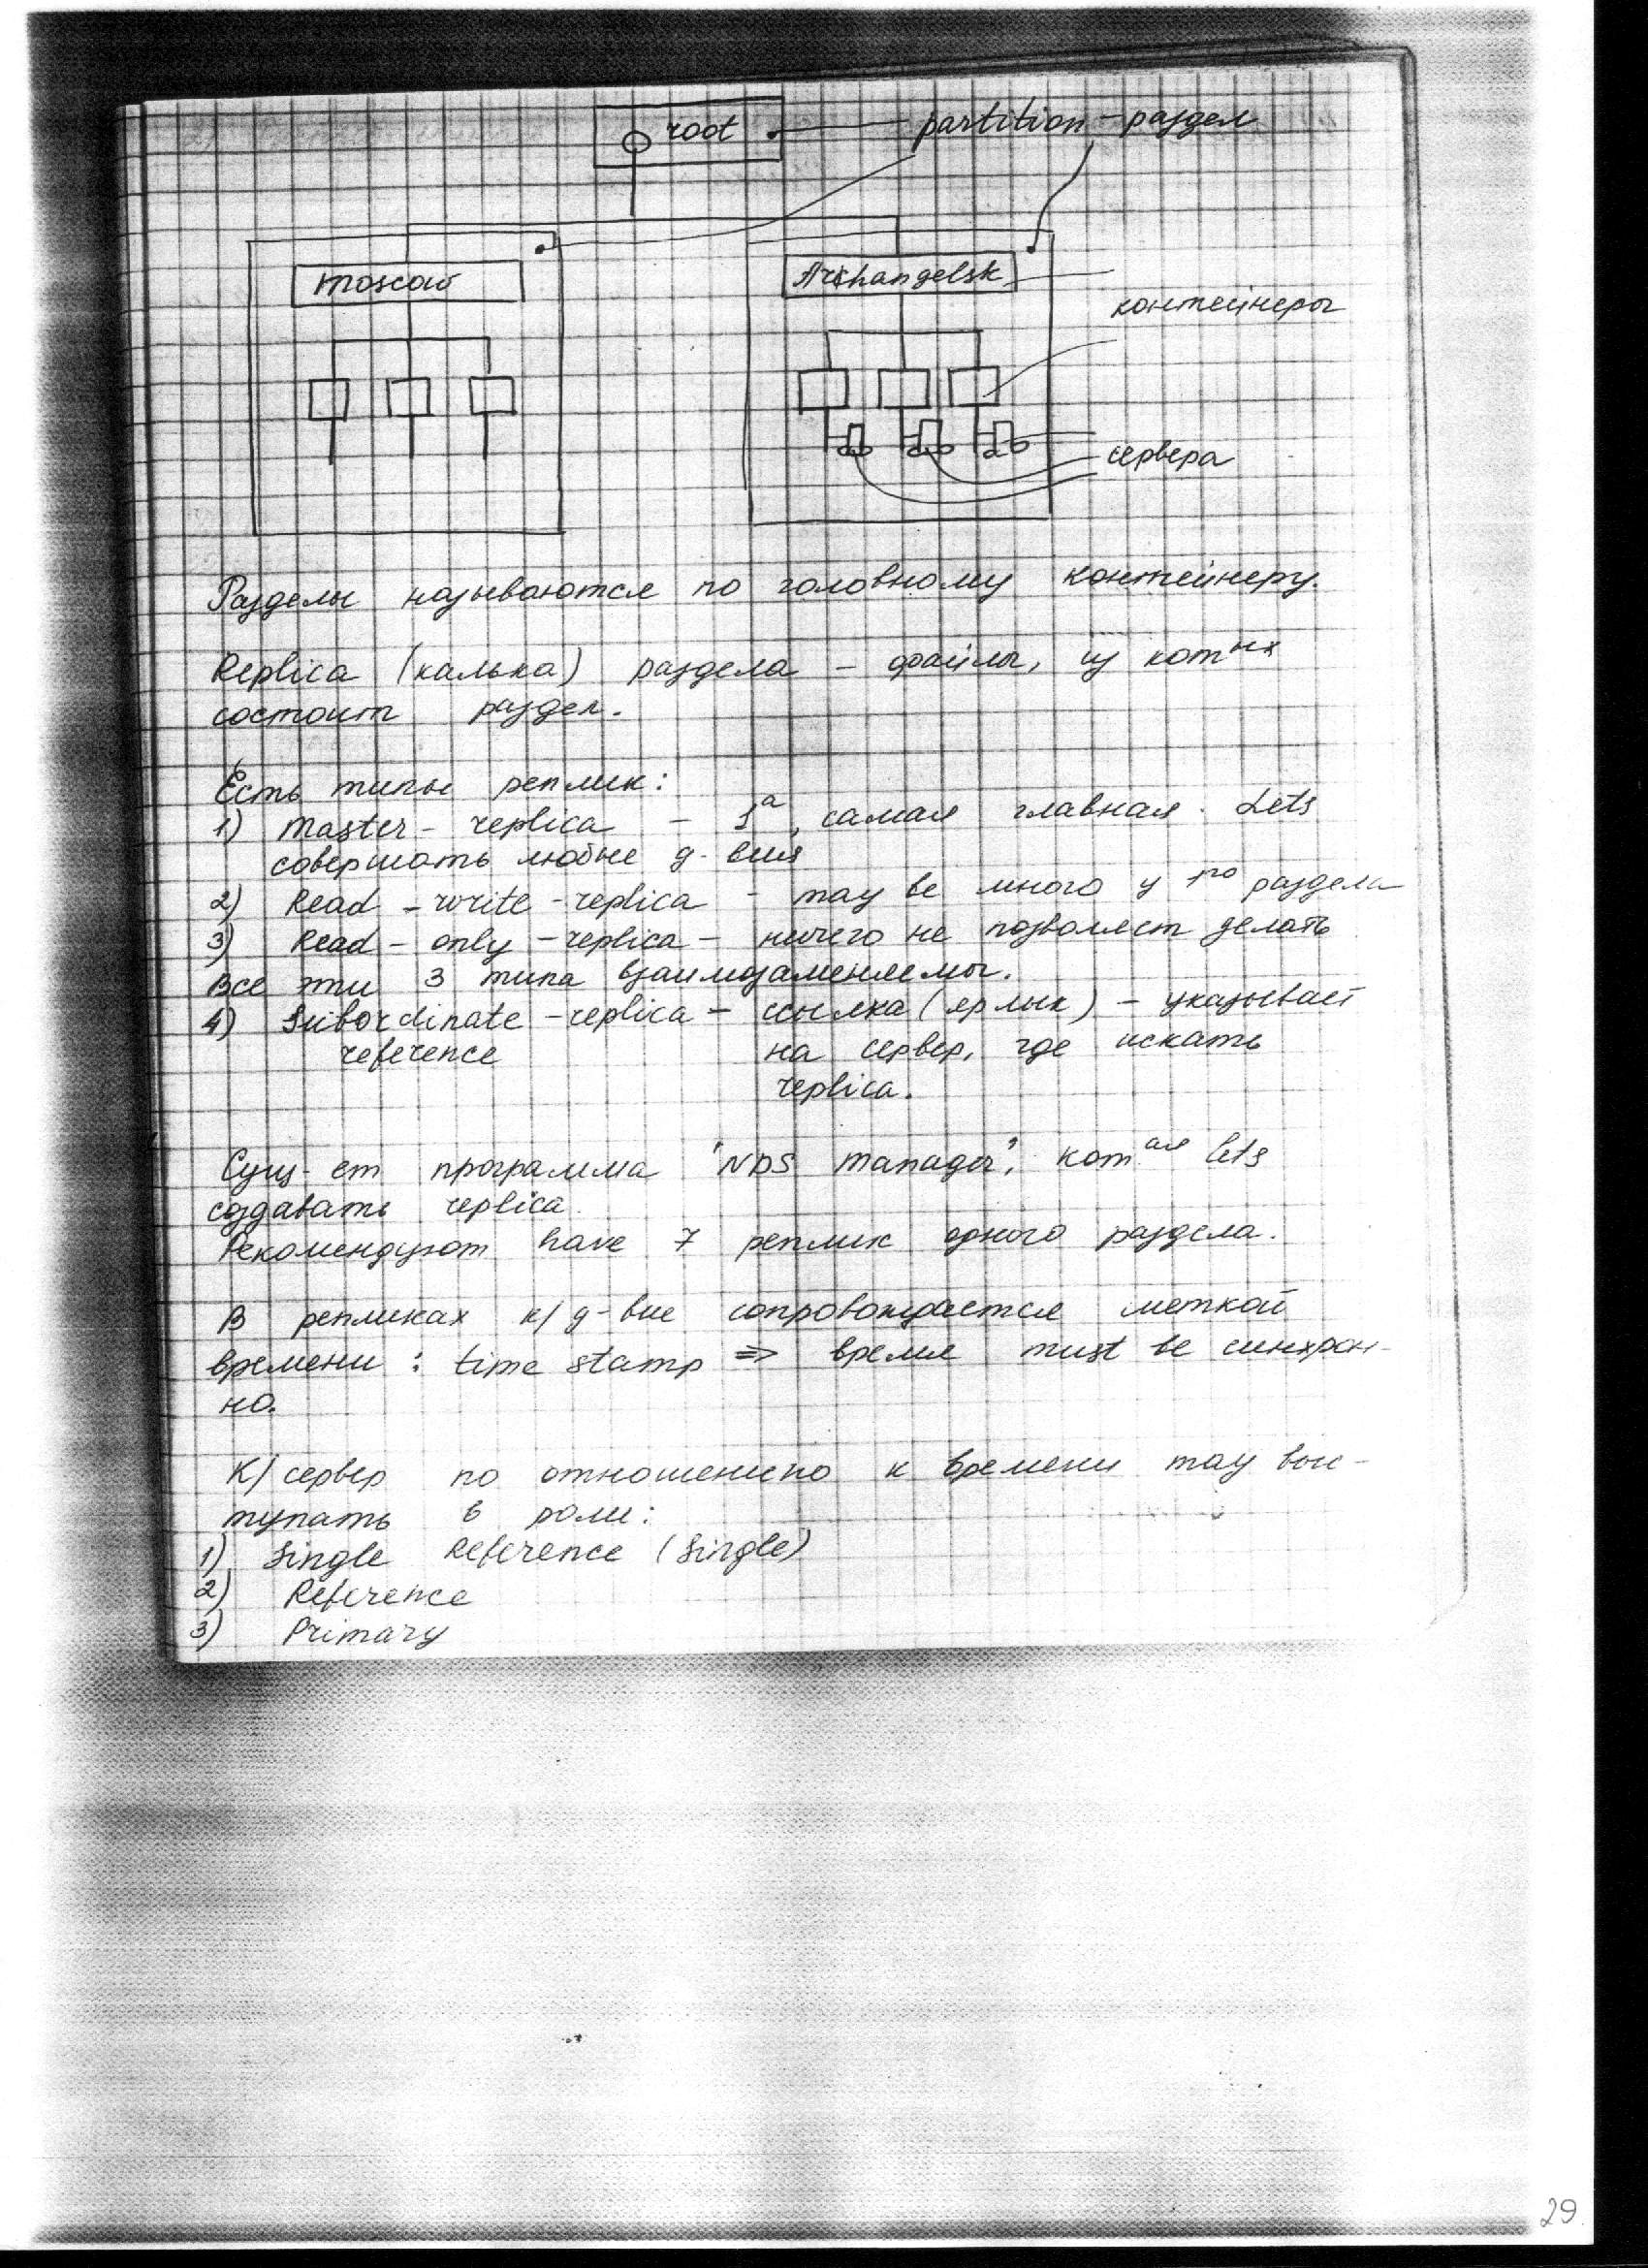 root
partition - раздел
Moscow
Archangelsk
контейнеры
сервера
Разделы называются по головному контейнеру.
Replica (калька) раздела - файлы, из кот ых
состоит раздел.
Есть типы реплик:
1) Master - replica - 1 а, самая главная. Lets
совершать любые д-вия
2) Read - write - replica - may be много у 1 го раздела
3) Read - only - replica - ничего не позволяет делать
Все эти 3 типа взаимозаменяемы.
4) Subordinate - replica - ссылка (ярлык) - указывает
reference на сервер, где искать
replica.
Сущ-ет программа "NDS Manager", кот ая lets
создавать replica.
Рекомендуют have 7 реплик одного раздела.
В репликах к/ д-вие сопровождается меткой
времени: time stamp => время must be синхрон-
но.
К/ сервер по отношению к времени may выс-
тупать в роли:
1) Single Reference (Single)
2) Reference
3) Primary
29